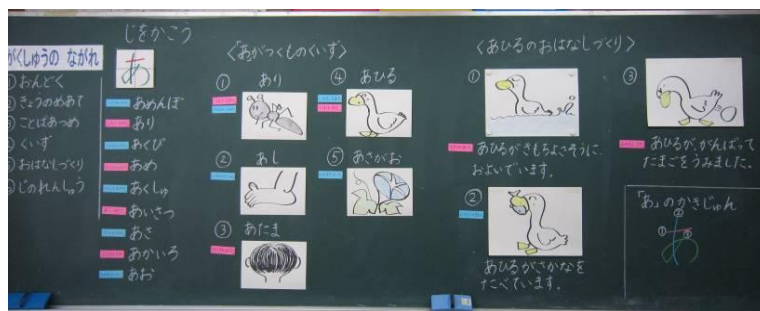 がくしゅうの ながれ
①おんどく
②きょうのめあて
③ことばあつめ
④くいず
⑤おはなしづくり
⑥じのれんしゅう
じをかこう
あ
あめんぼ
あり
あくび
あめ
あくしゅ
あいさつ
あさ
あかいろ
あお
〈あがつくものくいず〉
① あり
② あし
③ あたま
④ あひる
⑤ あさがお
〈あひるのおはなしづくり〉
①
あひるがきもちよさそうに、
およいでいます。
②
あひるがさかなを
たべています。
③
あひるが、がんばって
たまごをうみました。
「あ」のかきじゅん
②
①
③
あ